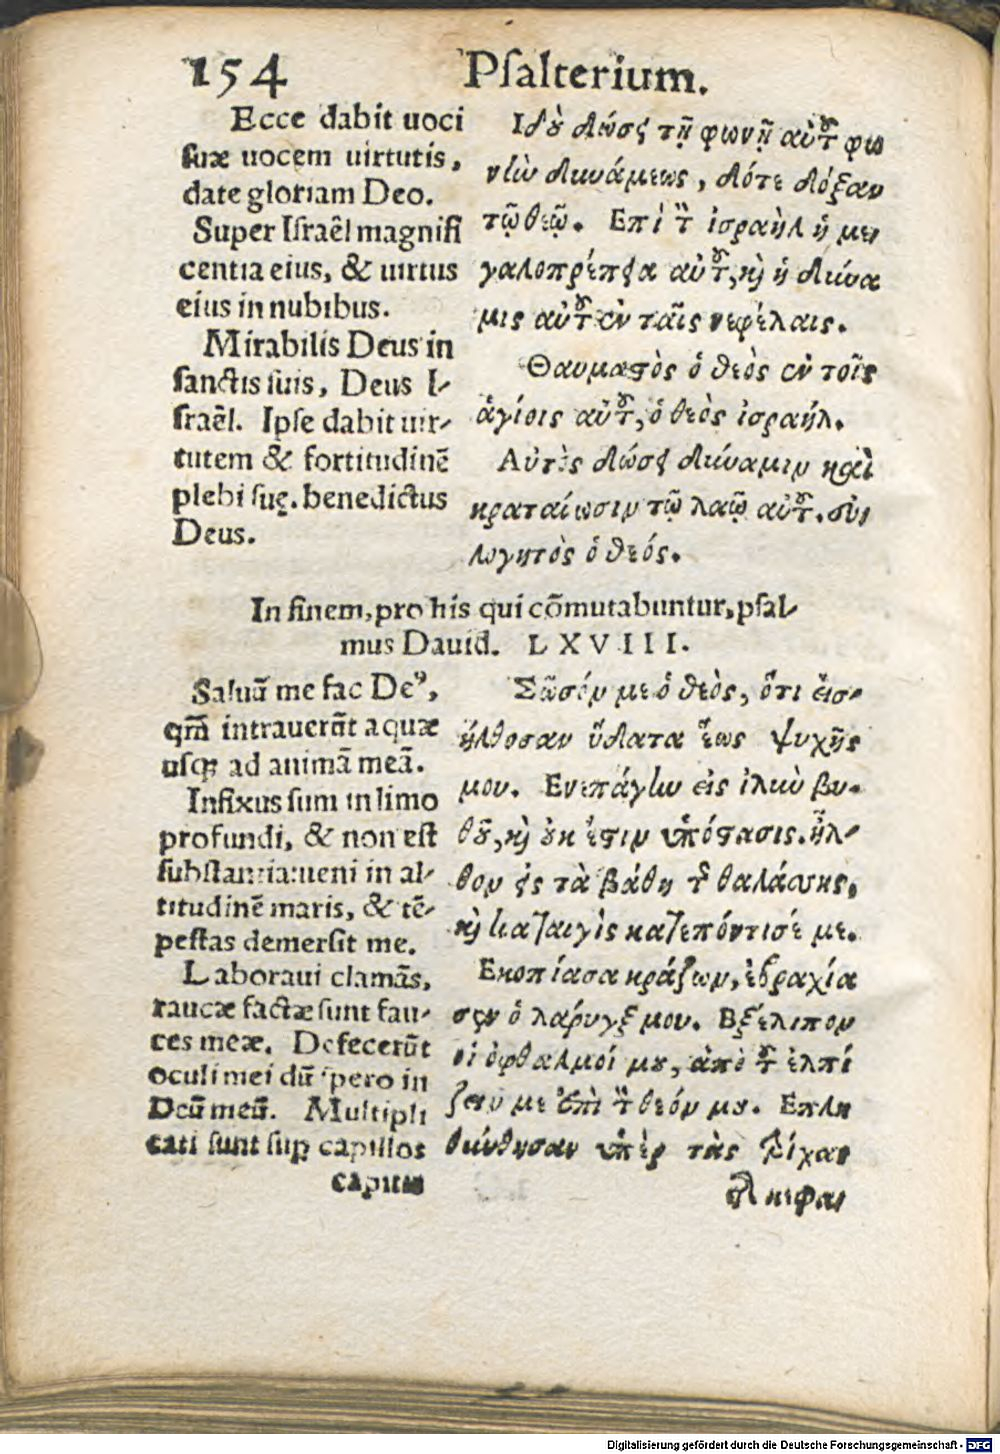 154 Psalterium.
Ecce dabit uoci
suæ uocem uirtutis,
date gloriam Deo.
Super Israêl magnifi
centia eius, & uirtus
eius in nubibus.
Mirabilis Deus in
sanctis suis, Deus I-
sraêl. Ipse dabit uir-
tutem & fortitudinē
plebi suę. benedictus
Deus.
Ιδȣ̀ δώσει τῇ φωνῇ αὐτȣ͂ φω
νὴν δυνάμεως, δότε δόξαν
τῷ θεῷ. Επὶ τὸν ἰσραὴλ ἡ με-
γαλοπρέπεια αὐτȣ͂, καὶ ἡ δύνα
μις αὐτȣ͂ ἐν ταῖς νεφέλαις.
Θαυμαστὸς ὁ θεὸς ἐν τοῖς
ἁγίοις αὐτȣ͂, ὁ θεὸς ἰσραήλ.
Αὐτὸς δώσει δύναμιν καὶ
κραταίωσιν τῷ λαῷ αὐτȣ͂. εὐ-
λογητὸς ὁ θεός.
In finem, pro his qui cōmutabuntur, psal-
mus Dauid. LXVIII.
Saluū me fac De⁹,
qm̄ intrauerūt aquæ
usq; ad animā meā.
Infixus sum in limo
profundi, & non est
substantia: ueni in al-
titudinē maris, & tē-
pestas demersit me.
Laboraui clamās,
raucæ factæ sunt fau-
ces meæ. Defecerūt
oculi mei dū spero in
Deū meū. Multipli
cati sunt sup capillos
capitis
Σῶσόν με ὁ θεὸς, ὅτι εἰσ-
ήλθοσαν ὕδατα ἕως ψυχῆς
μου. Ενεπάγην εἰς ἰλὺν βυ-
θȣ͂, καὶ ȣ̓κ ἔστιν ὑπόστασις. ἦλ-
θον εἰς τὰ βάθη τῆς θαλάσσης,
καὶ καταιγὶς κατεπόντισέ με.
Εκοπίασα κράζων, ἐβραχία
σεν ὁ λάρυγξ μου. Εξέλιπον
οἱ ὀφθαλμοί μȣ, ἀπὸ τȣ͂ ἐλπί
ζειν με ἐπὶ τὸν θεόν μȣ. Επλη
θύνθησαν ὑπὲρ τὰς τρίχας
τῆς κεφα-
Digitalisierung gefördert durch die Deutsche Forschungsgemeinschaft - DFG